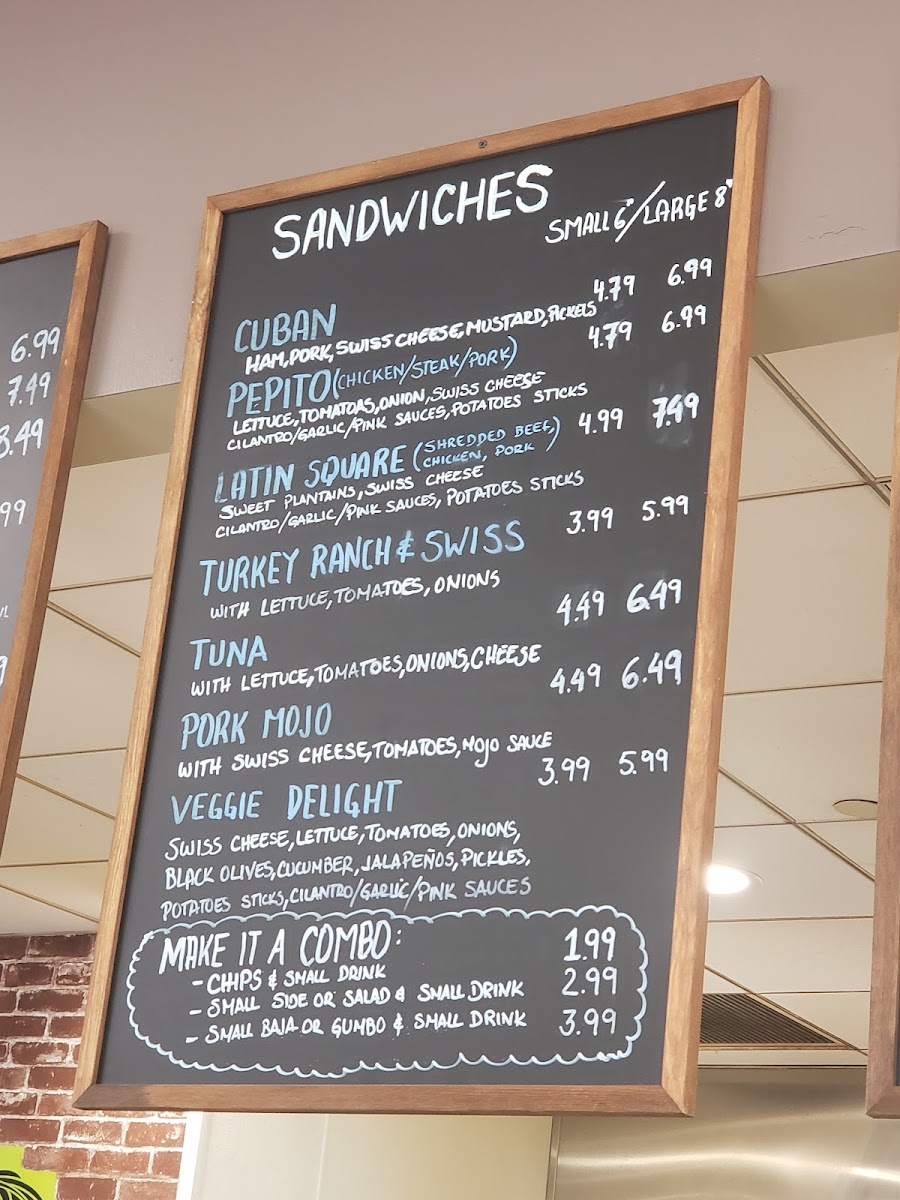 SANDWICHES
SMALL 6"/LARGE 8"
CUBAN 4.79 6.99
HAM, PORK, SWISS CHEESE, MUSTARD, PICKELS
PEPITO (CHICKEN/STEAK/PORK) 4.79 6.99
LETTUCE, TOMATOAS, ONION, SWISS CHEESE
CILANTRO/GARLIC/PINK SAUCES, POTATOES STICKS
LATIN SQUARE (SHREDDED BEEF, CHICKEN, PORK) 4.99 7.49
SWEET PLANTAINS, SWISS CHEESE
CILANTRO/GARLIC/PINK SAUCES, POTATOES STICKS
TURKEY RANCH & SWISS 3.99 5.99
WITH LETTUCE, TOMATOES, ONIONS
TUNA 4.49 6.49
WITH LETTUCE, TOMATOES, ONIONS, CHEESE
PORK MOJO 4.49 6.49
WITH SWISS CHEESE, TOMATOES, MOJO SAUCE
VEGGIE DELIGHT 3.99 5.99
SWISS CHEESE, LETTUCE, TOMATOES, ONIONS,
BLACK OLIVES, CUCUMBER, JALAPEÑOS, PICKLES,
POTATOES STICKS, CILANTRO/GARLIC/PINK SAUCES
MAKE IT A COMBO:
- CHIPS & SMALL DRINK 1.99
- SMALL SIDE OR SALAD & SMALL DRINK 2.99
- SMALL BAJA OR GUMBO & SMALL DRINK 3.99
6.99
7.49
8.49
99